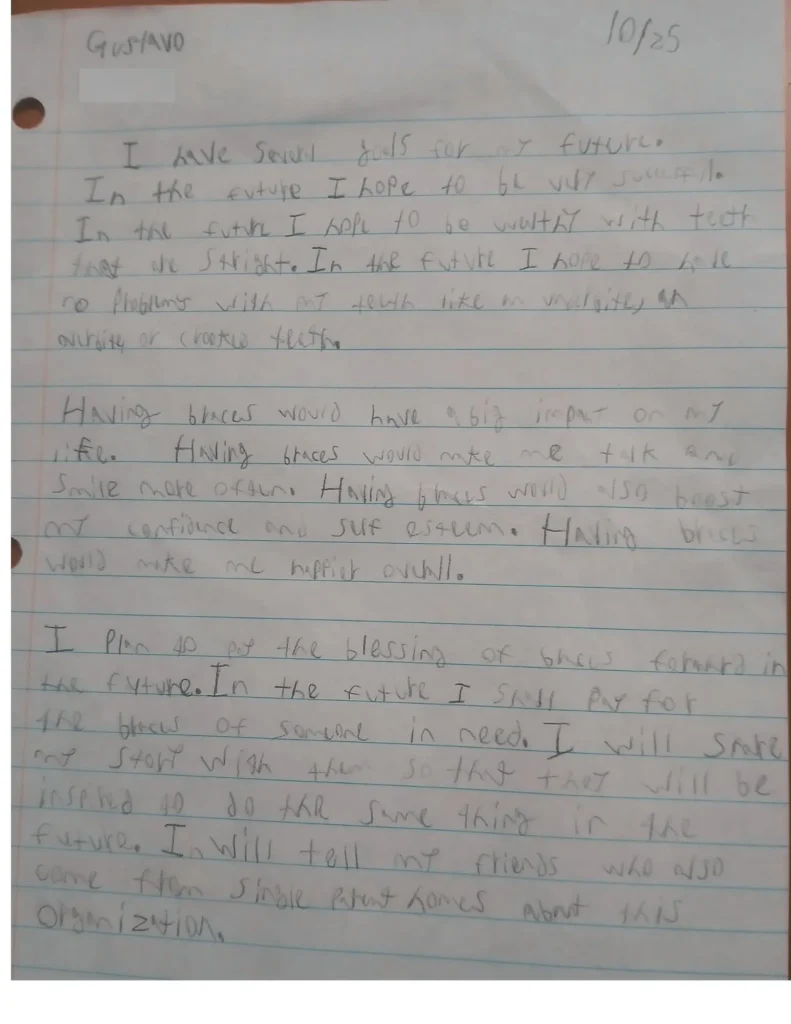 Gustavo
10/25
I have several goals for my future.
In the future I hope to be very sucessful.
In the future I hope to be wealthy with teeth
that are stright. In the future I hope to have
no problems with my teeth like an underbite, an
overbite, or crooked teeth.
Having braces would have a big impact on my
life. Having braces would make me talk and
smile more often. Having braces would also boost
my confidence and self esteem. Having braces
would make me happier overall.
I plan to pay the blessing of braces forward in
the future. In the future I shall pay for
the braces of someone in need. I will share
my story with them so that they will be
inspired to do the same thing in the
future. In will tell my friends who also
come from single parent homes about this
organization.